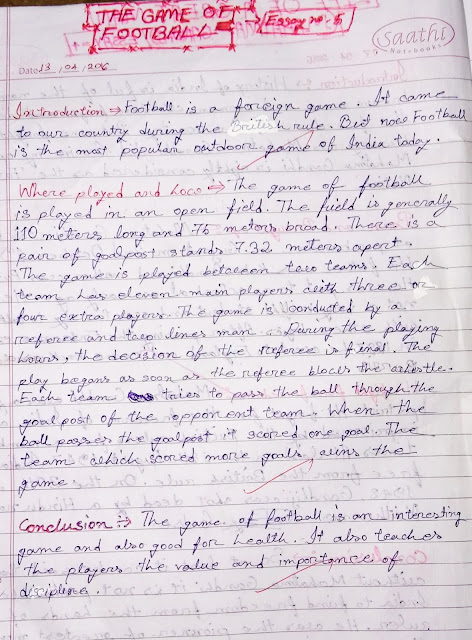 THE GAME OF
FOOTBALL → Essay no - 5
Saathi
Notebooks
Date 13, 04, 206
Introduction → Football is a foreign game. It came
to our country during the British rule. But now Football
is the most popular outdoor game of India today.
Where played and → The game of football
is played in an open field. The field is generally
110 meters long and 75 meters broad. There is a
pair of goalpost stands 7.32 meters apert.
The game is played between two teams. Each
team has eleven main players with three or
four extra players. The game is conducted by a
referee and two lines man. During the playing
hours, the decision of the referee is final. The
play begans as soon as the referee blows the whistle.
Each team tries to pass the ball through the
goal post of the opponent team. When the
ball passes the goalpost it scored one goal. The
team which scored more goals wins the
game
Conclusion → The game of football is an interesting
game and also good for health. It also teaches
the players the value and importance of
discipline.